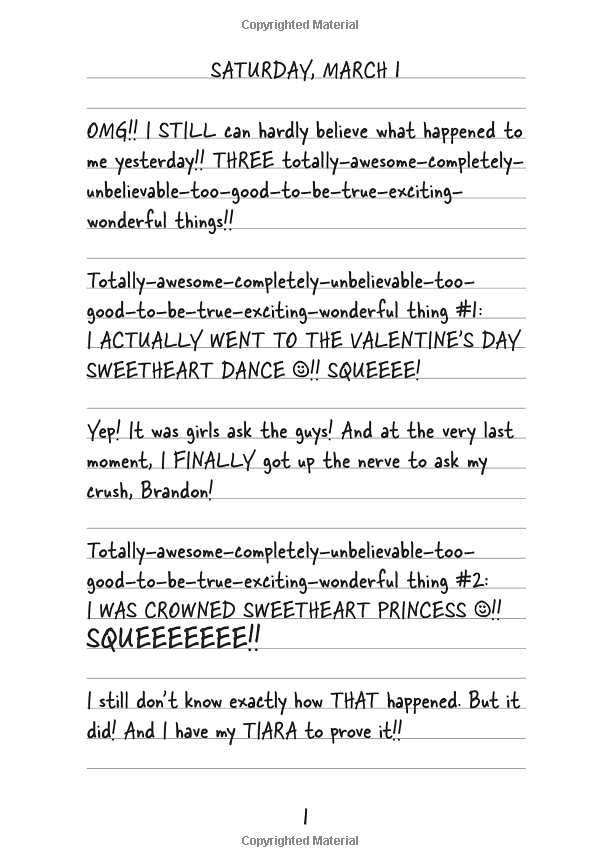 Copyrighted Material
SATURDAY, MARCH 1
OMG!! I STILL can hardly believe what happened to
me yesterday!! THREE totally-awesome-completely-
unbelievable-too-good-to-be-true-exciting-
wonderful things!!
Totally-awesome-completely-unbelievable-too-
good-to-be-true-exciting-wonderful thing #1:
I ACTUALLY WENT TO THE VALENTINE'S DAY
SWEETHEART DANCE ☺!! SQUEEEE!
Yep! It was girls ask the guys! And at the very last
moment, I FINALLY got up the nerve to ask my
crush, Brandon!
Totally-awesome-completely-unbelievable-too-
good-to-be-true-exciting-wonderful thing #2:
I WAS CROWNED SWEETHEART PRINCESS ☺!!
SQUEEEEEEE!!
I still don't know exactly how THAT happened. But it
did! And I have my TIARA to prove it!!
1
Copyrighted Material